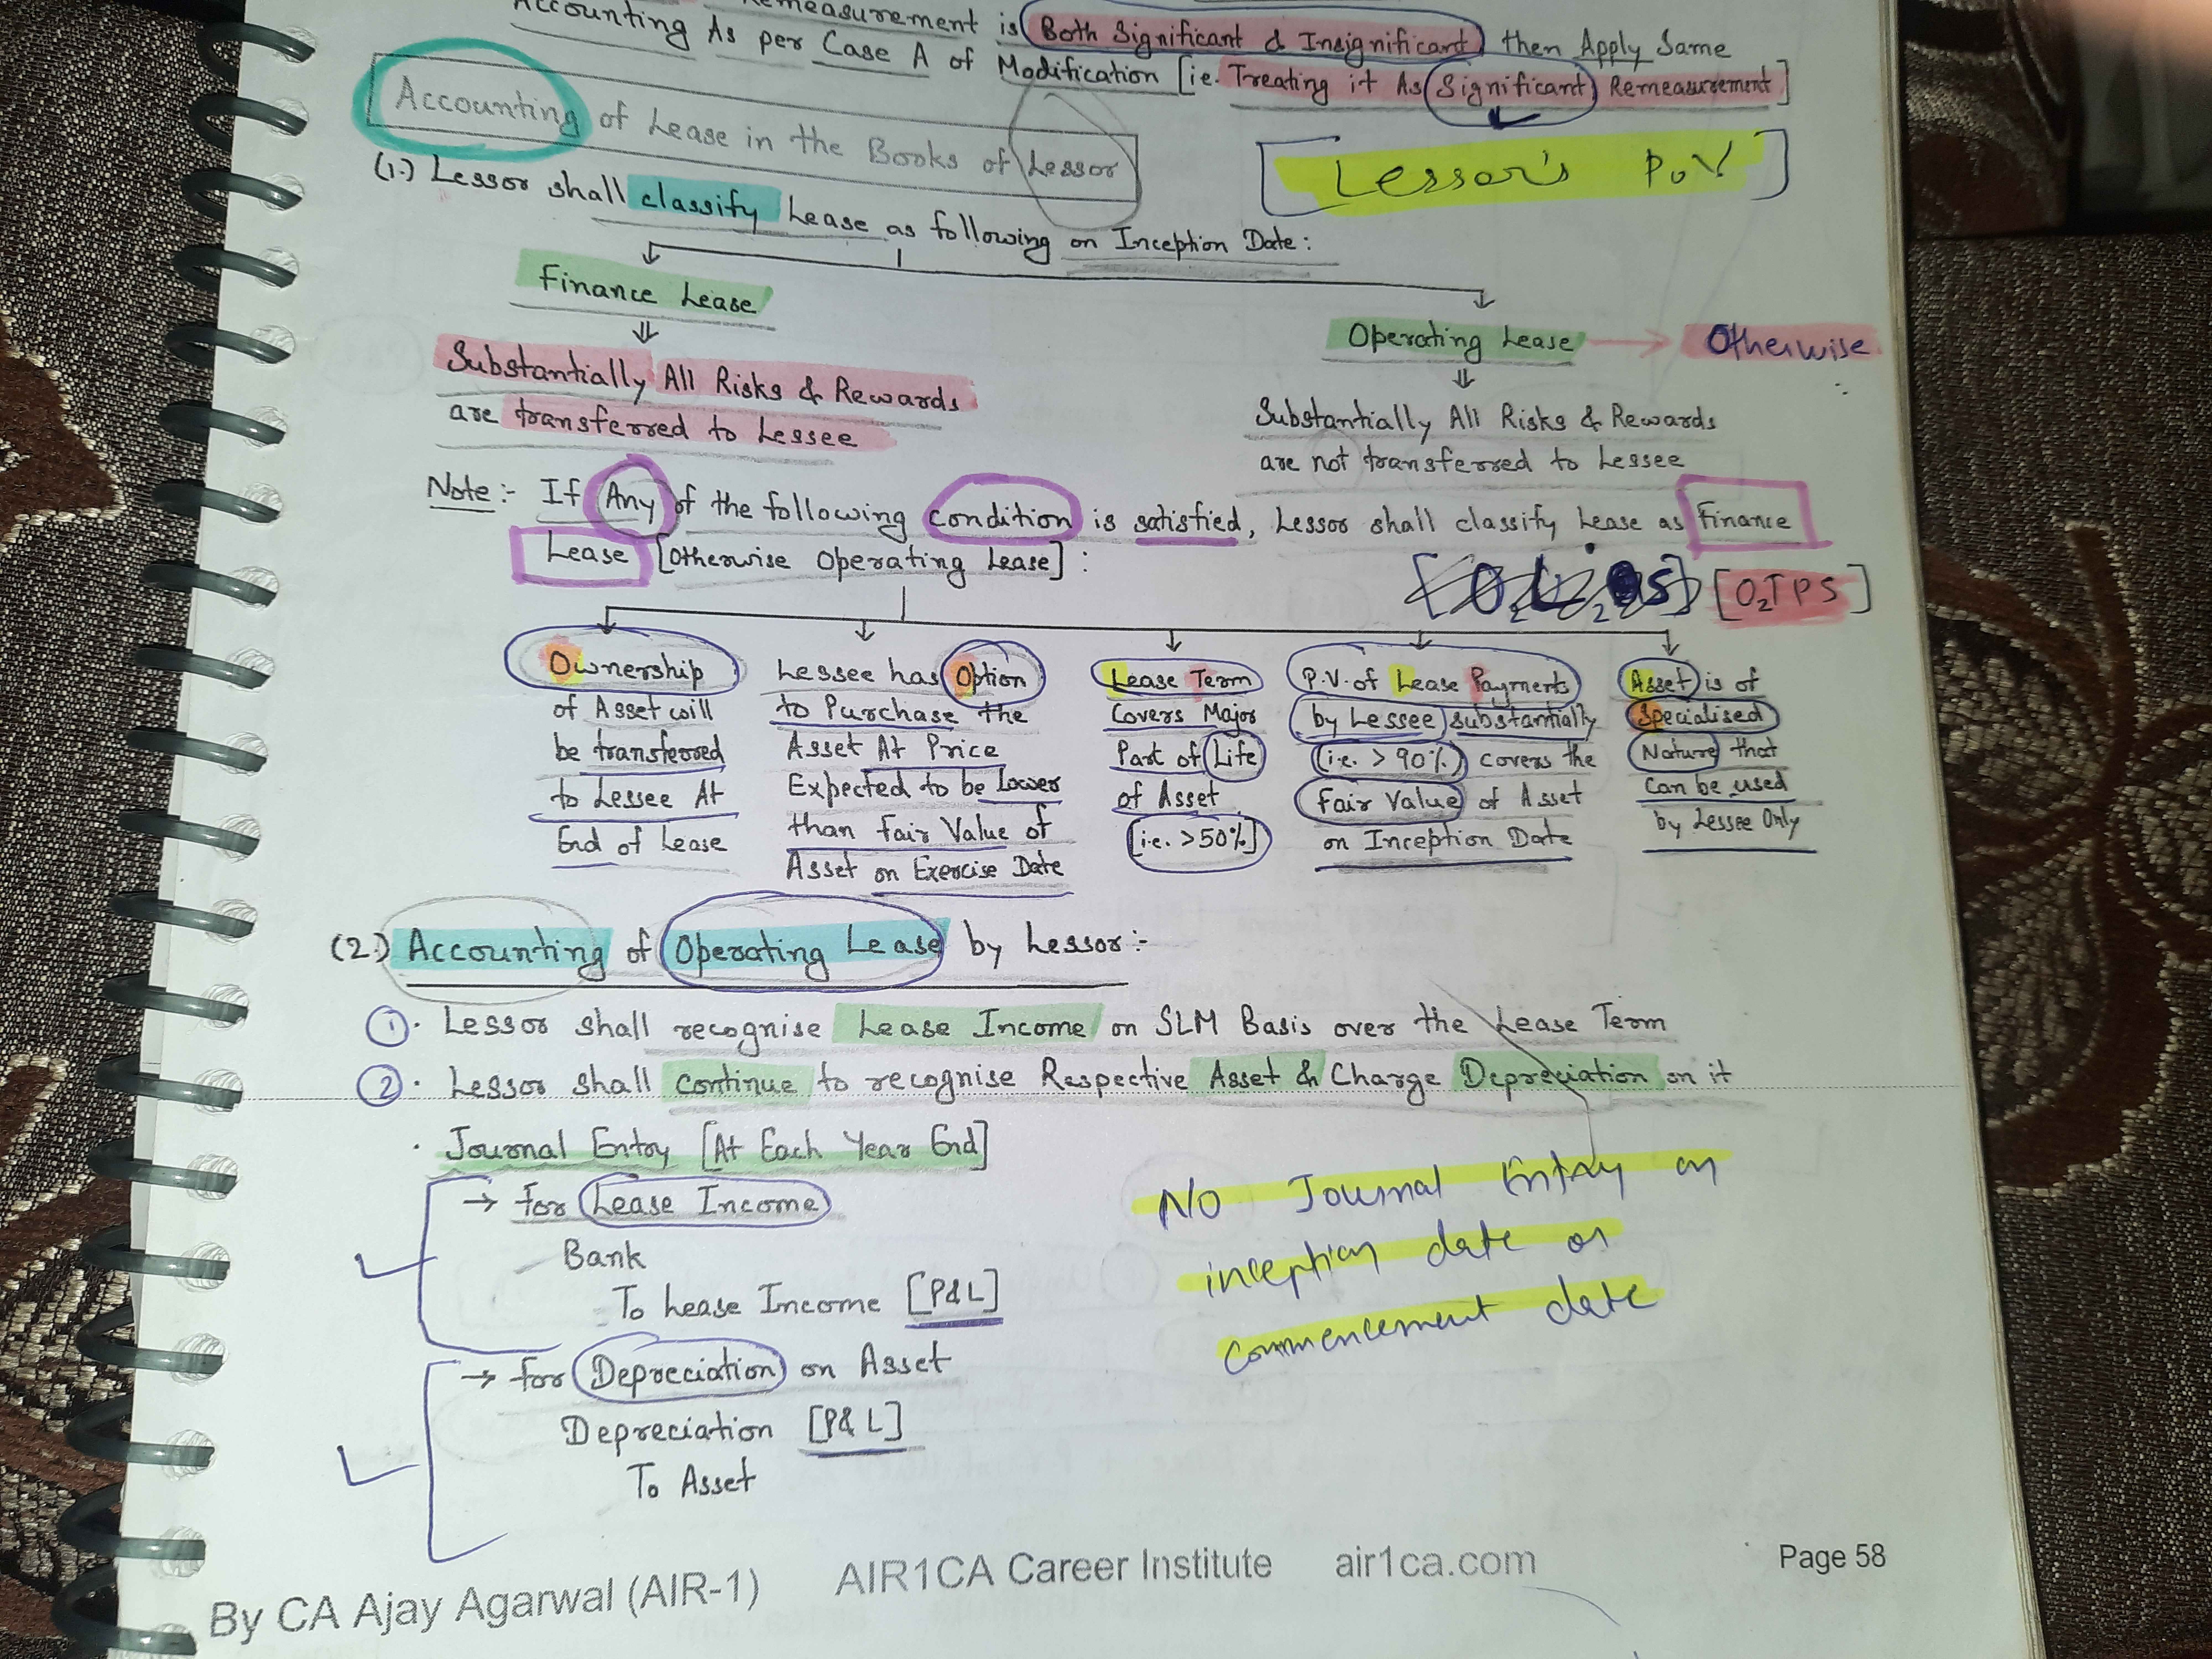 Remeasurement is Both Significant & Insignificant then Apply Same
Accounting As per Case A of Modification [ie. Treating it As Significant Remeasurement]
Accounting of Lease in the Books of Lessor
[Lessor's PoV]
(1.) Lessor shall classify Lease as following on Inception Date:
Finance Lease
Operating Lease → Otherwise
Substantially All Risks & Rewards
are transferred to Lessee
Substantially All Risks & Rewards
are not transferred to Lessee
Note:- If Any of the following condition is satisfied, Lessor shall classify Lease as Finance
Lease [Otherwise Operating Lease]:
[O₂TPS]
Ownership
of Asset will
be transferred
to Lessee At
End of Lease
Lessee has Option
to Purchase the
Asset At Price
Expected to be Lower
than Fair Value of
Asset on Exercise Date
Lease Term
Covers Major
Part of Life
of Asset
[i.e. >50%]
P.V. of Lease Payments
by Lessee substantially
(i.e. > 90%) covers the
Fair Value of Asset
on Inception Date
Asset is of
Specialised
Nature that
Can be used
by Lessee Only
(2.) Accounting of Operating Lease by Lessor:-
1. Lessor shall recognise Lease Income on SLM Basis over the Lease Term
2. Lessor shall continue to recognise Respective Asset & Charge Depreciation on it
. Journal Entry [At Each Year End]
→ for Lease Income
Bank
To Lease Income [P&L]
→ for Depreciation on Asset
Depreciation [P&L]
To Asset
No Journal Entry on
inception date or
commencement date
By CA Ajay Agarwal (AIR-1) AIR1CA Career Institute air1ca.com Page 58